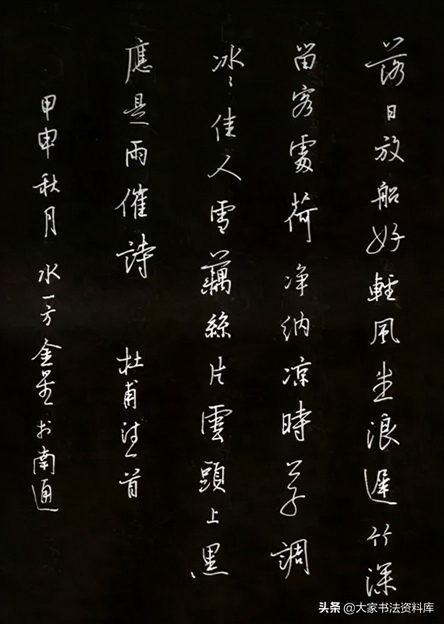 落日放船好輕風生浪遲竹深
留客處荷净纳凉時公子調
冰〻佳人雪藕絲片雲頭上黑
應是雨催詩 杜甫詩一首
甲申秋月 水一方金星书南通
头条 @大家书法资料库